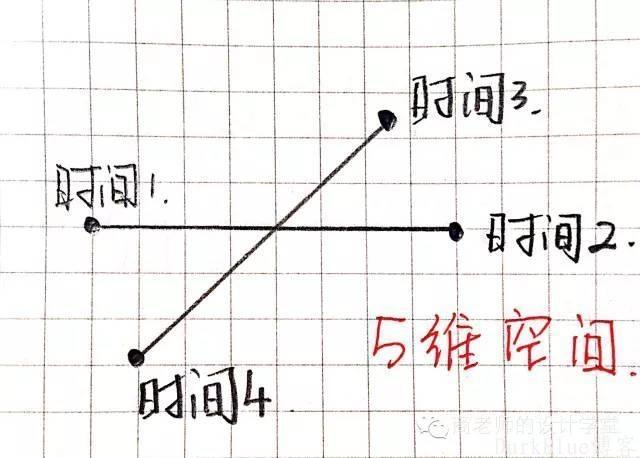 时间3.
时间1.
时间2.
5维空间.
时间4
商老师的设计学堂
DarkBlue博客